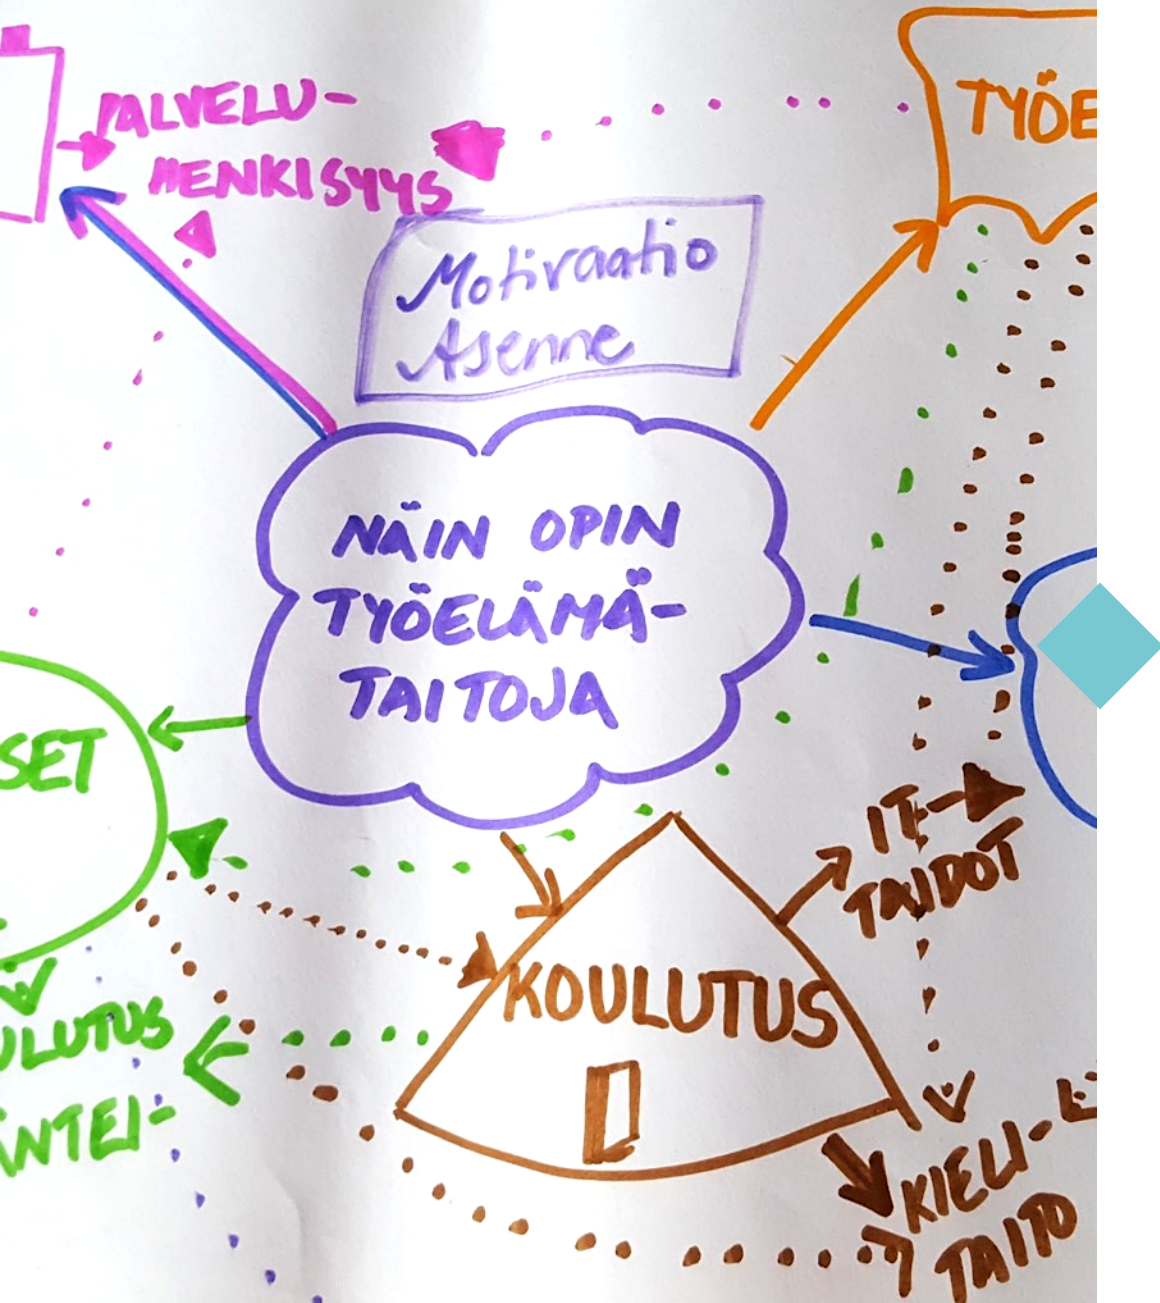 PALVELU-
HENKISYYS
TYÖE
Motivaatio
Asenne
NÄIN OPIN
TYÖELÄMÄ-
TAITOJA
SET
IT-
TAIDOT
KOULUTUS
ULUTUS
ÄNTEI-
KIELI-
TAITO